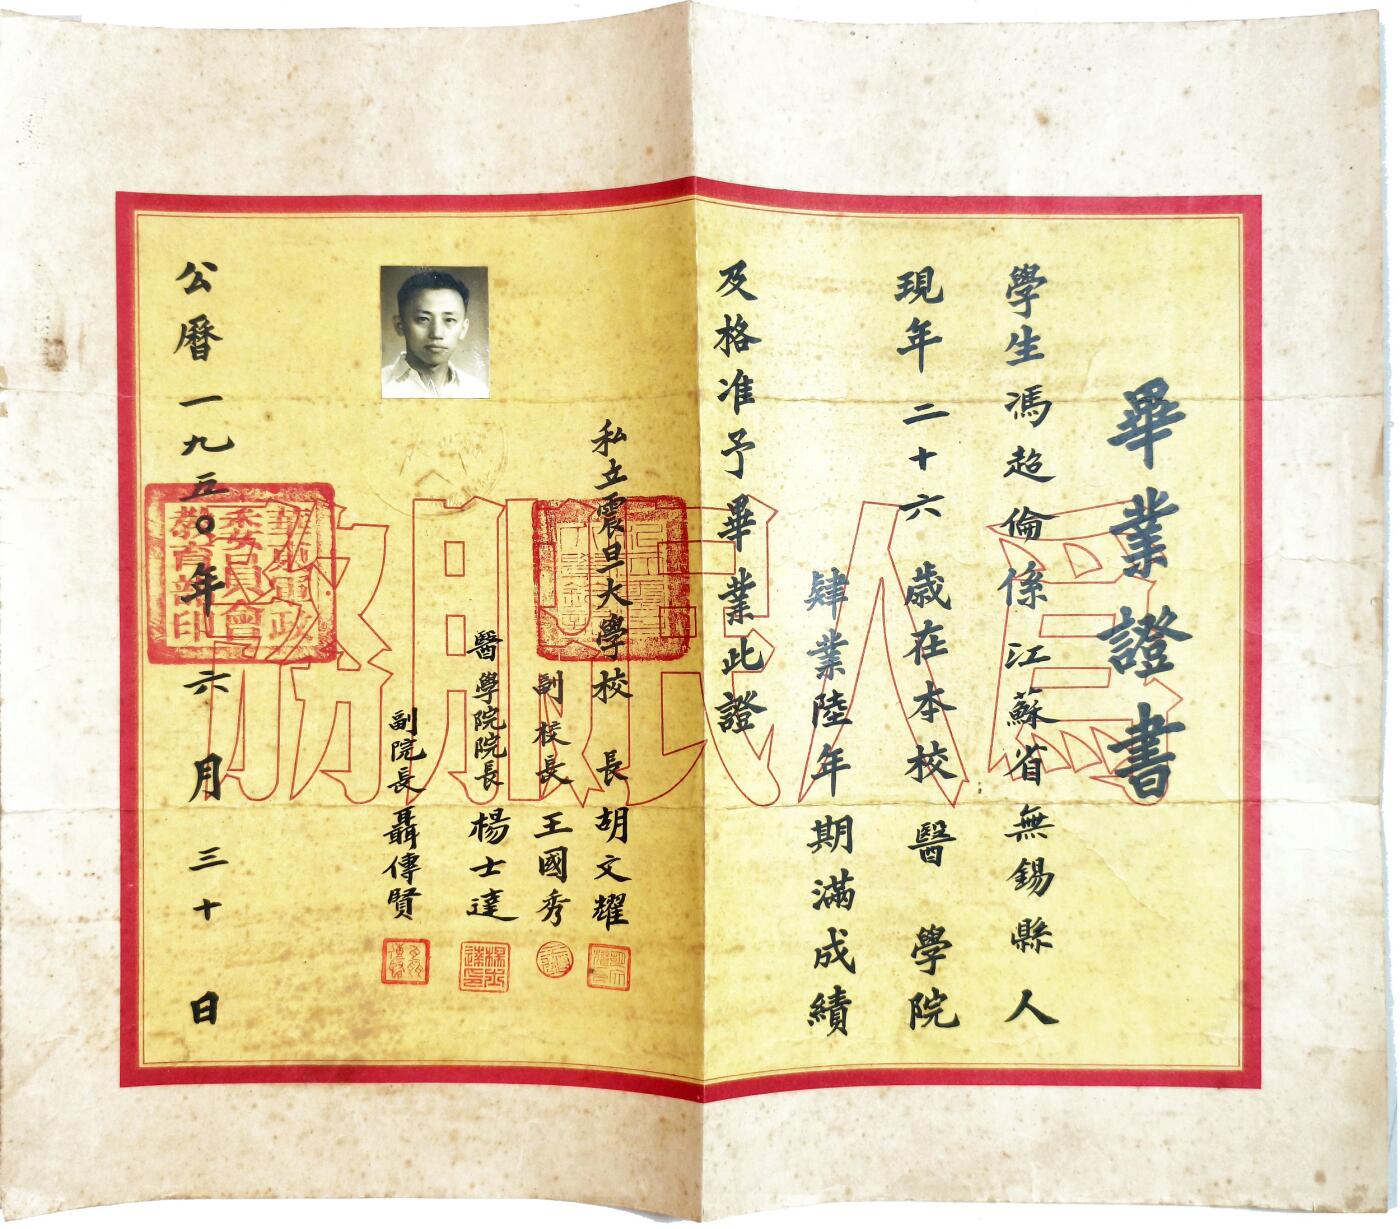 畢業證書
學生馮超倫係江蘇省無錫縣人
現年二十六歲在本校醫學院
肄業陸年期滿成績
及格准予畢業此證
私立震旦大學校長胡文耀
副校長王國秀
醫學院院長楊士達
副院長聶傳賢
公曆一九五〇年六月三十日
爲人民服務
華東軍政
委員會
教育部印